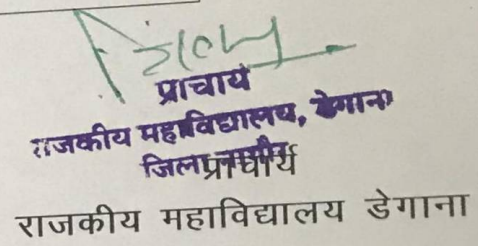 प्राचार्य
राजकीय महाविद्यालय, डेगाना
जिला
प्राचार्य
राजकीय महाविद्यालय डेगाना